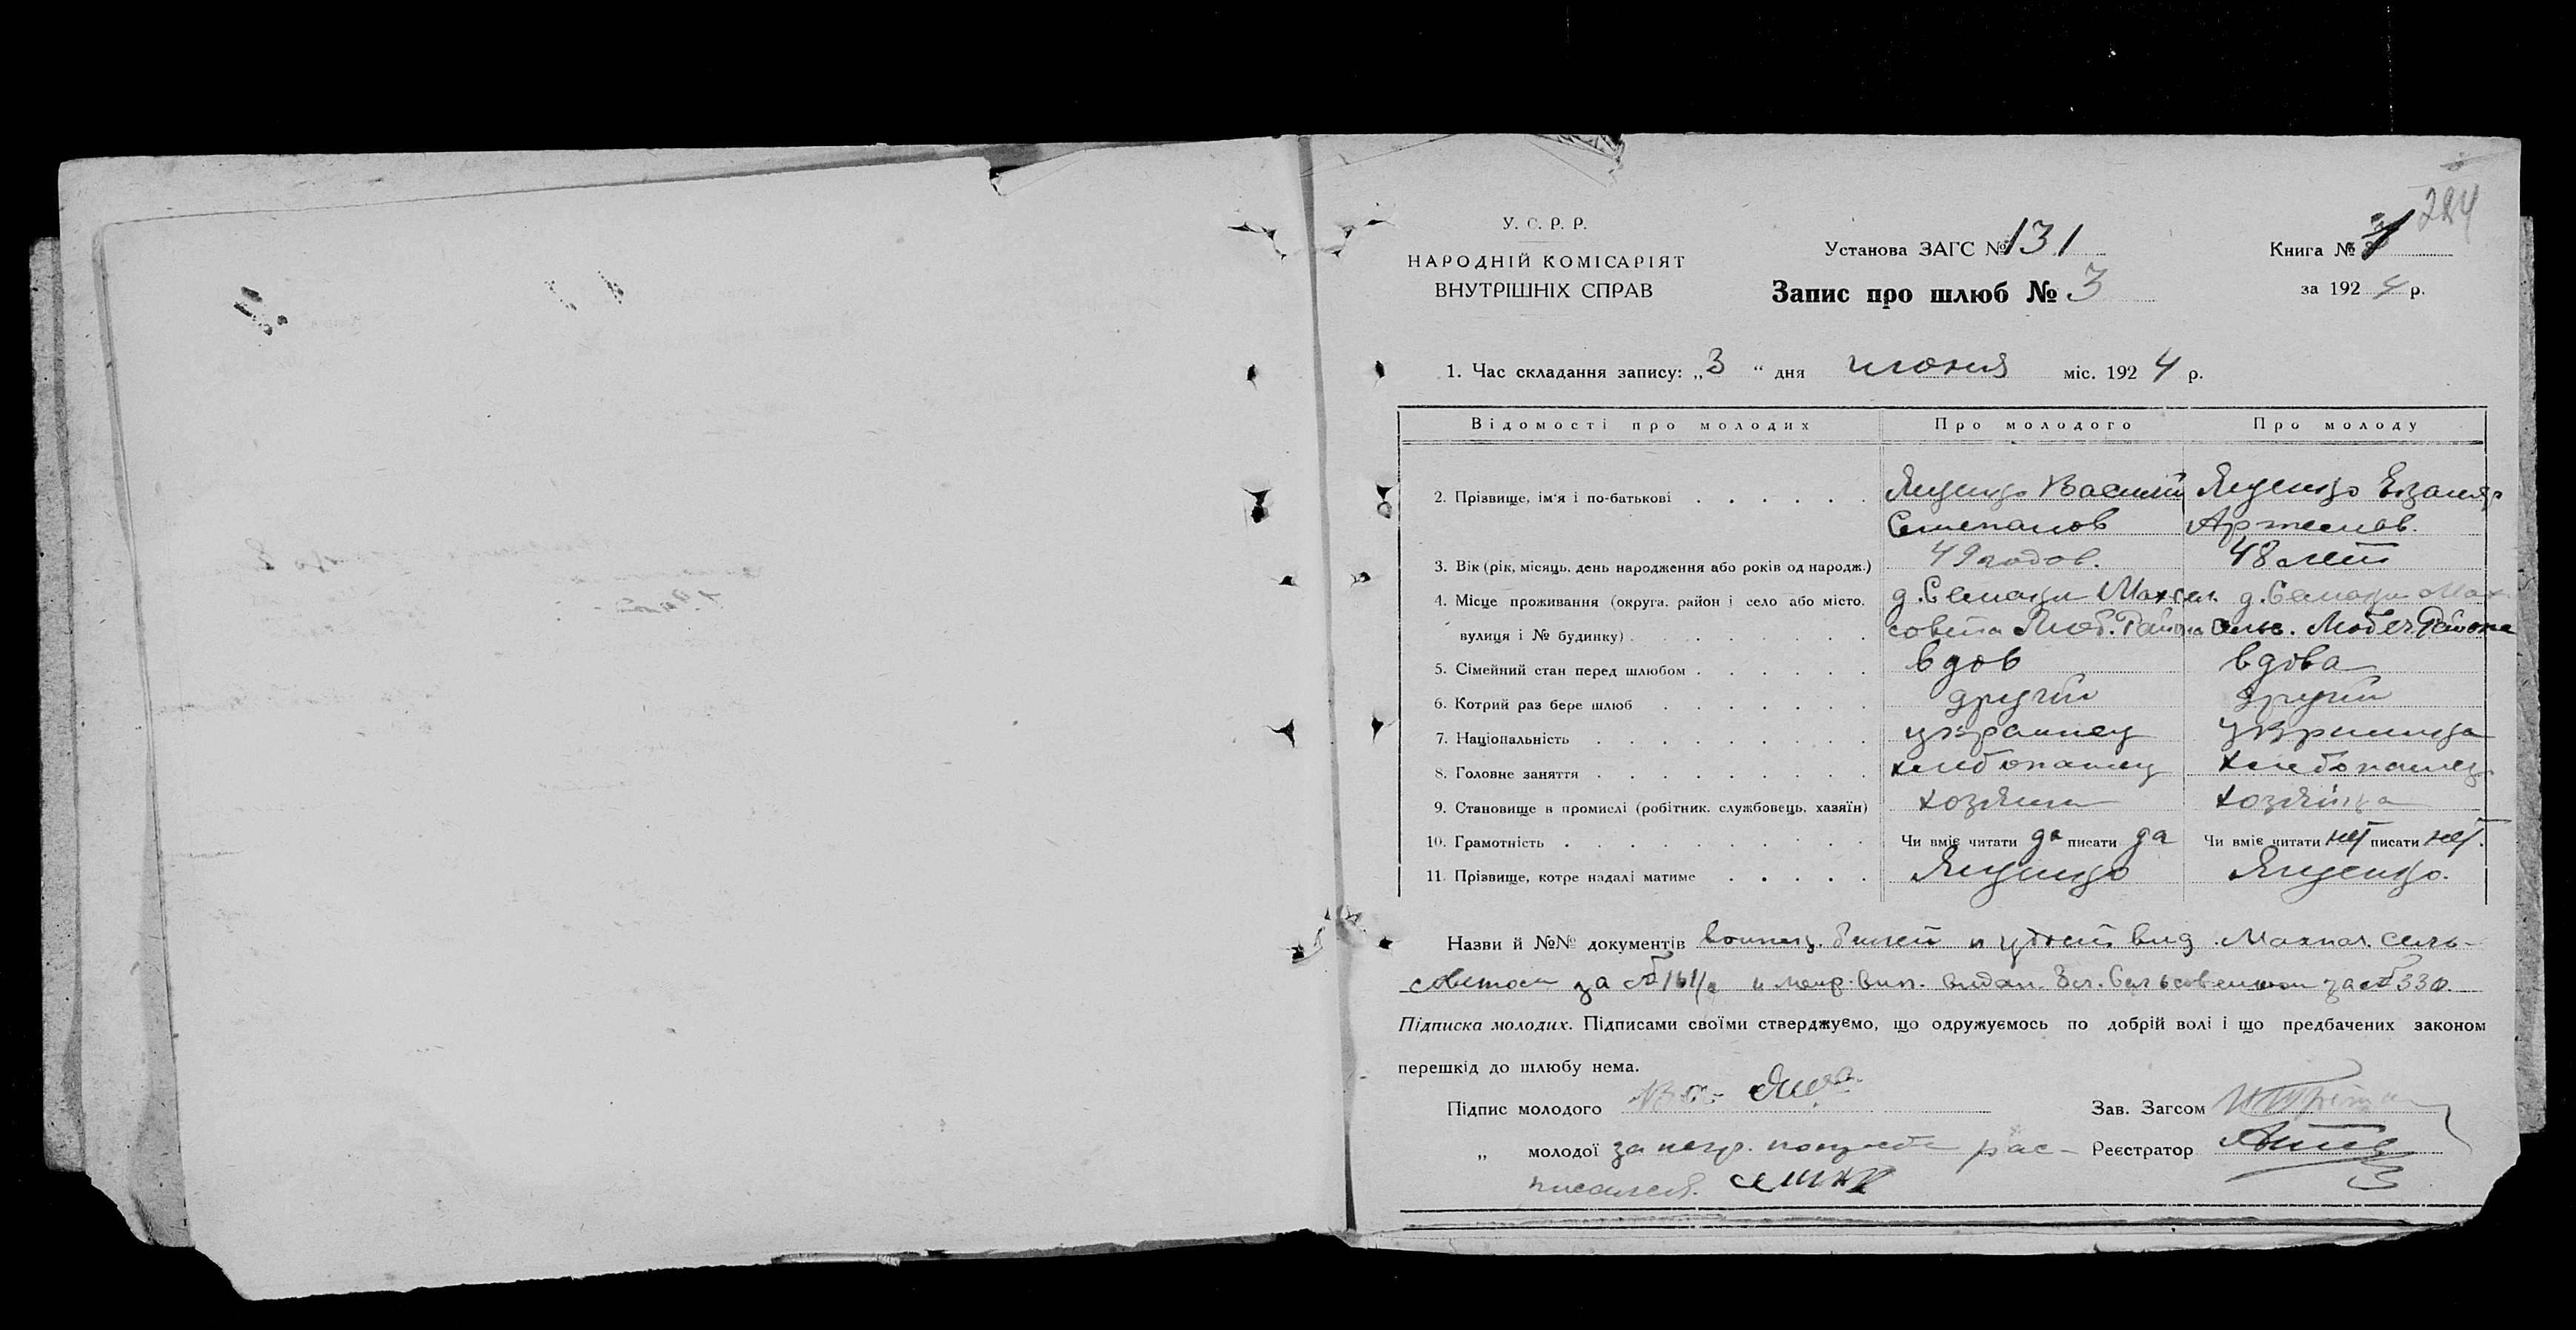 284
У. С. Р. Р.
НАРОДНІЙ КОМІСАРІЯТ
ВНУТРІШНІХ СПРАВ
Установа ЗАГС № 131
Запис про шлюб № 3
Книга №
за 1924 р.
1. Час складання запису: „3“ дня июня міс. 1924 р.
Відомості про молодих Про молодого Про молоду
2. Прізвище, ім'я і по-батькові Яценко Василий Яценко
Степанов Артемов.
3. Вік (рік, місяць, день народження або років од народж.) 49 годов. 48 лет
4. Місце проживання (округа, район і село або місто, д. Семаки Мах сел. д. Семаки Мах
вулиця і № будинку) совета Люб. Района сельс. Любеч. Района
5. Сімейний стан перед шлюбом вдов вдова
6. Котрий раз бере шлюб другий другий
7. Національність украинец украинка
8. Головне заняття хлебопашец хлебопашец
9. Становище в промислі (робітник, службовець, хазяїн) хозяин хозяйка
10. Грамотність Чи вміє читати да писати да Чи вміє читати нет писати нет.
11. Прізвище, котре надалі матиме Яценко Яценко.
Назви й №№ документів воинск. билет и удост вид. Махнат. сель-
советом за № и метр. вып. видан. сельсоветом за № 330.
Підписка молодих. Підписами своїми стверджуємо, що одружуємось по добрій волі і що предбачених законом
перешкід до шлюбу нема.
Підпис молодого Зав. Загсом
„ молодої за негр. рас- Реєстратор
писался.